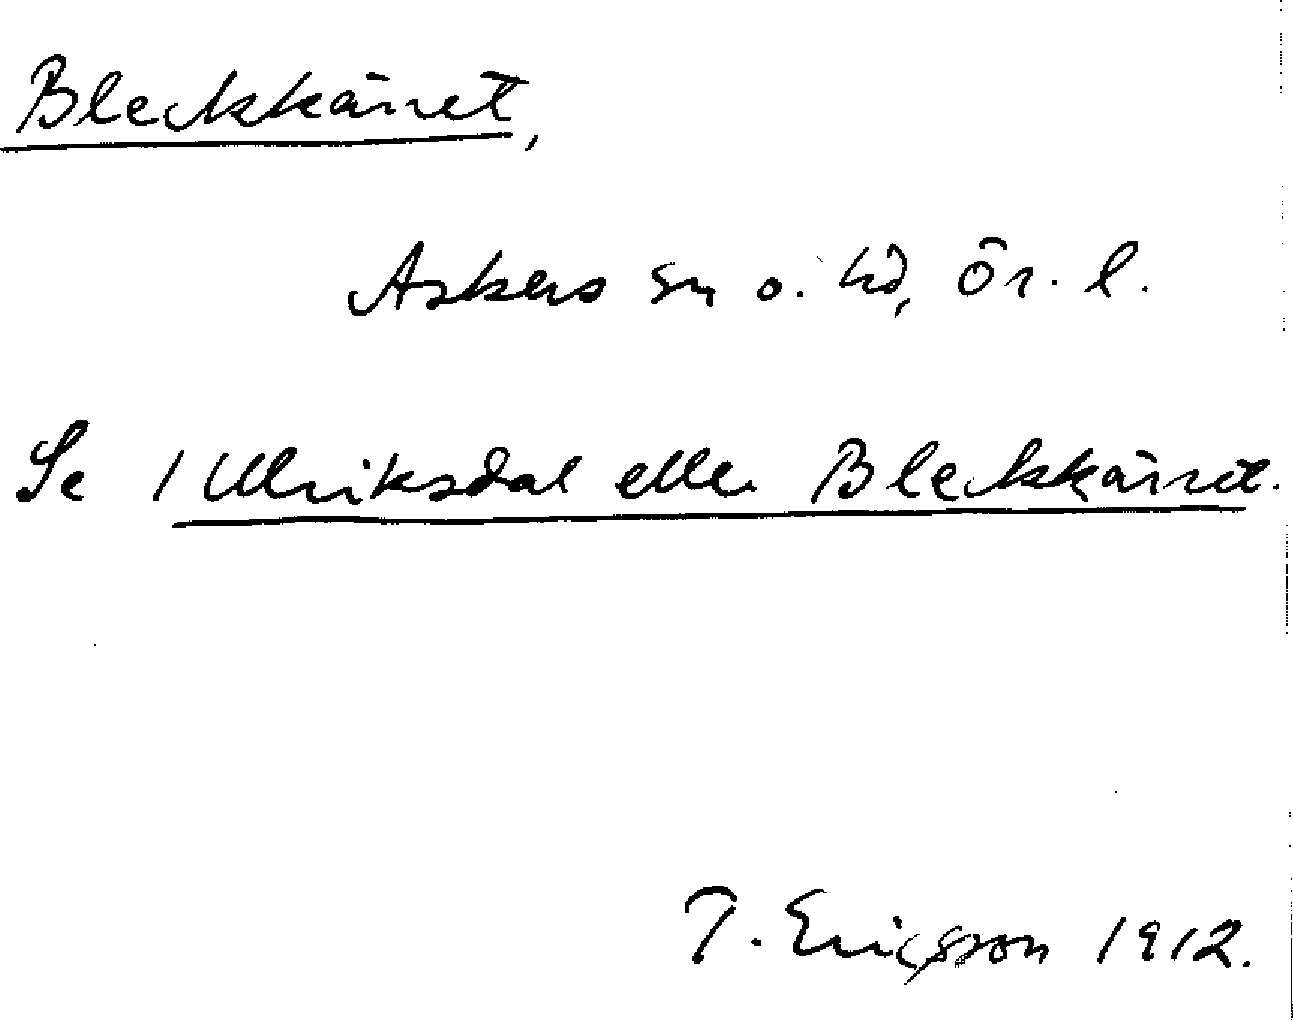 Bleckkärret,
Askers sn o. hd, Ör. l.
Se 1 Ulriksdal eller Bleckkärret.
T. Ericsson 1912.